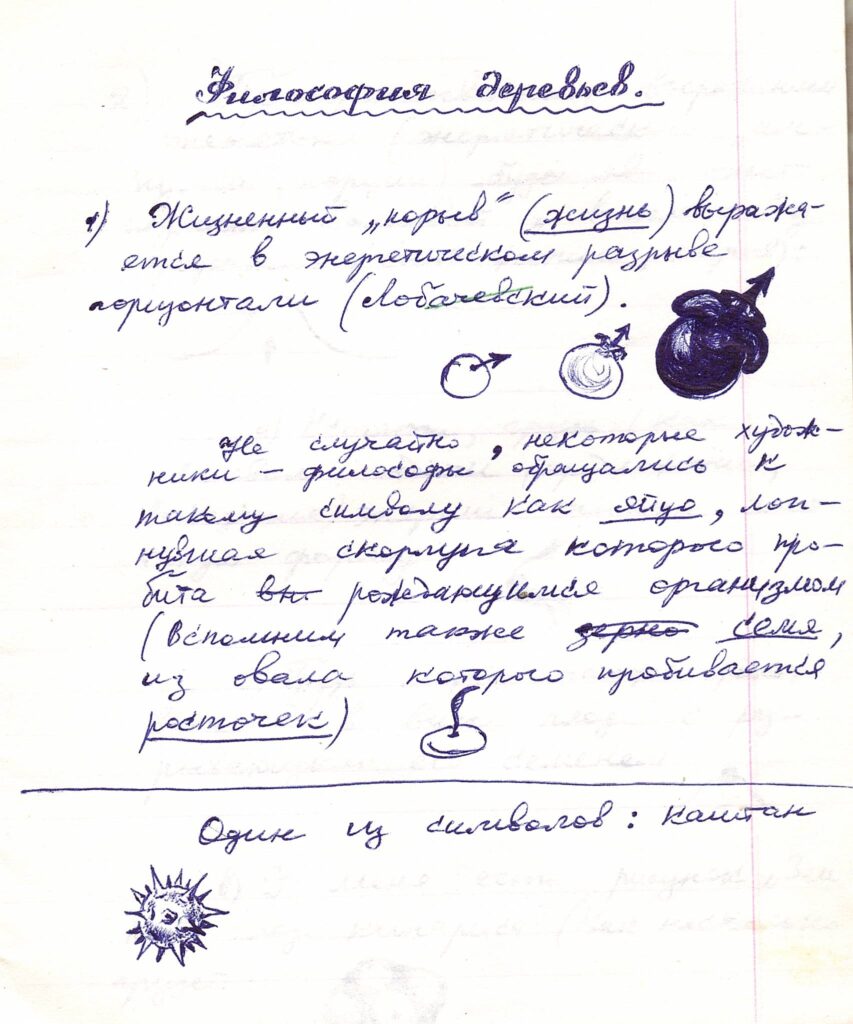 Философия деревьев.
1) Жизненный „порыв“ (жизнь) выража-
ется в энергетическом разрыве
горизонтали (Лобачевский).
Не случайно, некоторые худож-
ники – философы обращались к
такому символу как яйцо, лоп-
нувшая скорлупа которого про-
бита вн рождающимся организмом
(Вспомним также зерно семя,
из овала которого пробивается
росточек)
Один из символов: каштан